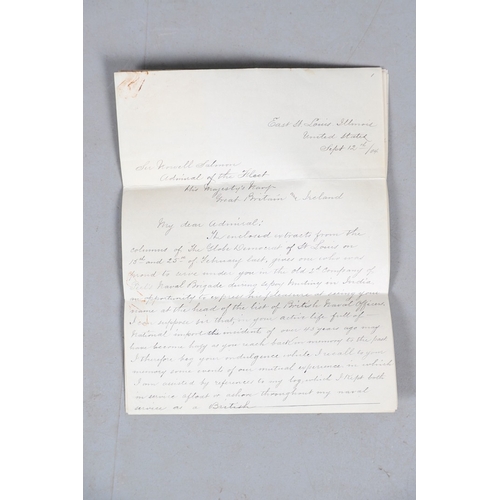 East St Louis Illinois
United States
Sept 12th/04
Sir Nowell Salmon
Admiral of the Fleet
His Majesty's Navy
Great Britain & Ireland
My dear Admiral:
The enclosed extracts from the
columns of The Globe Democrat of St Louis on
and 25th of February last, gives one who was
proud to serve under you in the old 2nd Company of
Naval Brigade during Sepoy Mutiny in India
an opportunity to
name at the head of the list of British Naval Officers
I can suppose Sir that, in your active life full of
National import the incidents of over years ago may
have become hazy as you reach back in memory to the past
I therefore beg your indulgence while I recall to your
memory some events of our mutual experience in which
I am assisted by reference to my log, which I kept both
in service afloat & ashore throughout my naval
service as a British